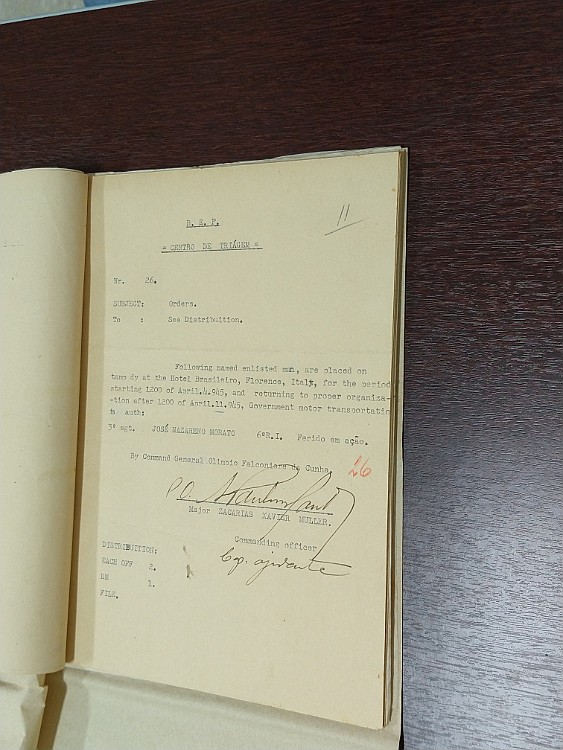 11
B. E. P.
"CENTRO DE TRIÁGEM"
Nr. 26.
SUBJECT: Orders.
To : See Distribuition.
Following named enlisted men, are placed on
temp dy at the Hotel Brasileiro, Florence, Italy, for the period
starting 1200 of April.4.945, and returning to proper organiza-
-tion after 1200 of April.11.945, Government motor transportatio
is auth:
3º sgt. JOSÉ NAZARENO MORATO 6º R.I. Ferido em ação.
By Command General Olimpio Falconiere da Cunha
26
P.O.
Major ZACARIAS XAVIER MULLER.
Commanding officer
Cap. ajudante
DISTRIBUITION:
EACH OFF 2.
EM 1.
FILE.